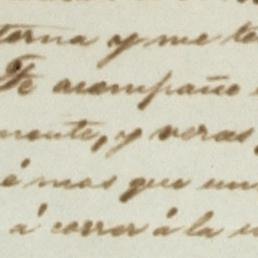 terna y me te
Te acompaño
mente, y veras
é mas que un
á correr á la